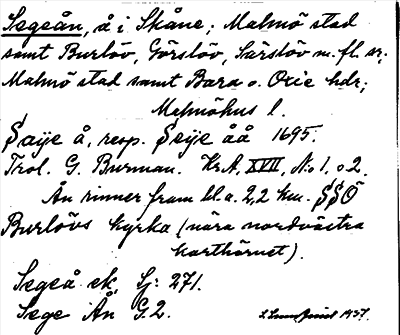 Segeån, å i Skåne; Malmö stad
samt Burlöv, Görslöv, Särslöv m. fl. sr;
Malmö stad samt Bara o. Oxie hdr;
Malmöhus l.
Saije å, resp. Seije åå 1695.
Trol. G. Burman. KrA, XVII, No 1, o 2.
Ån rinner fram bl.a. 2,2 km. SSÖ
Burlövs kyrka (nära nordvästra
karthörnet).
Segeå ek. Gj: 271.
Sege Ån G. 2.
1937.